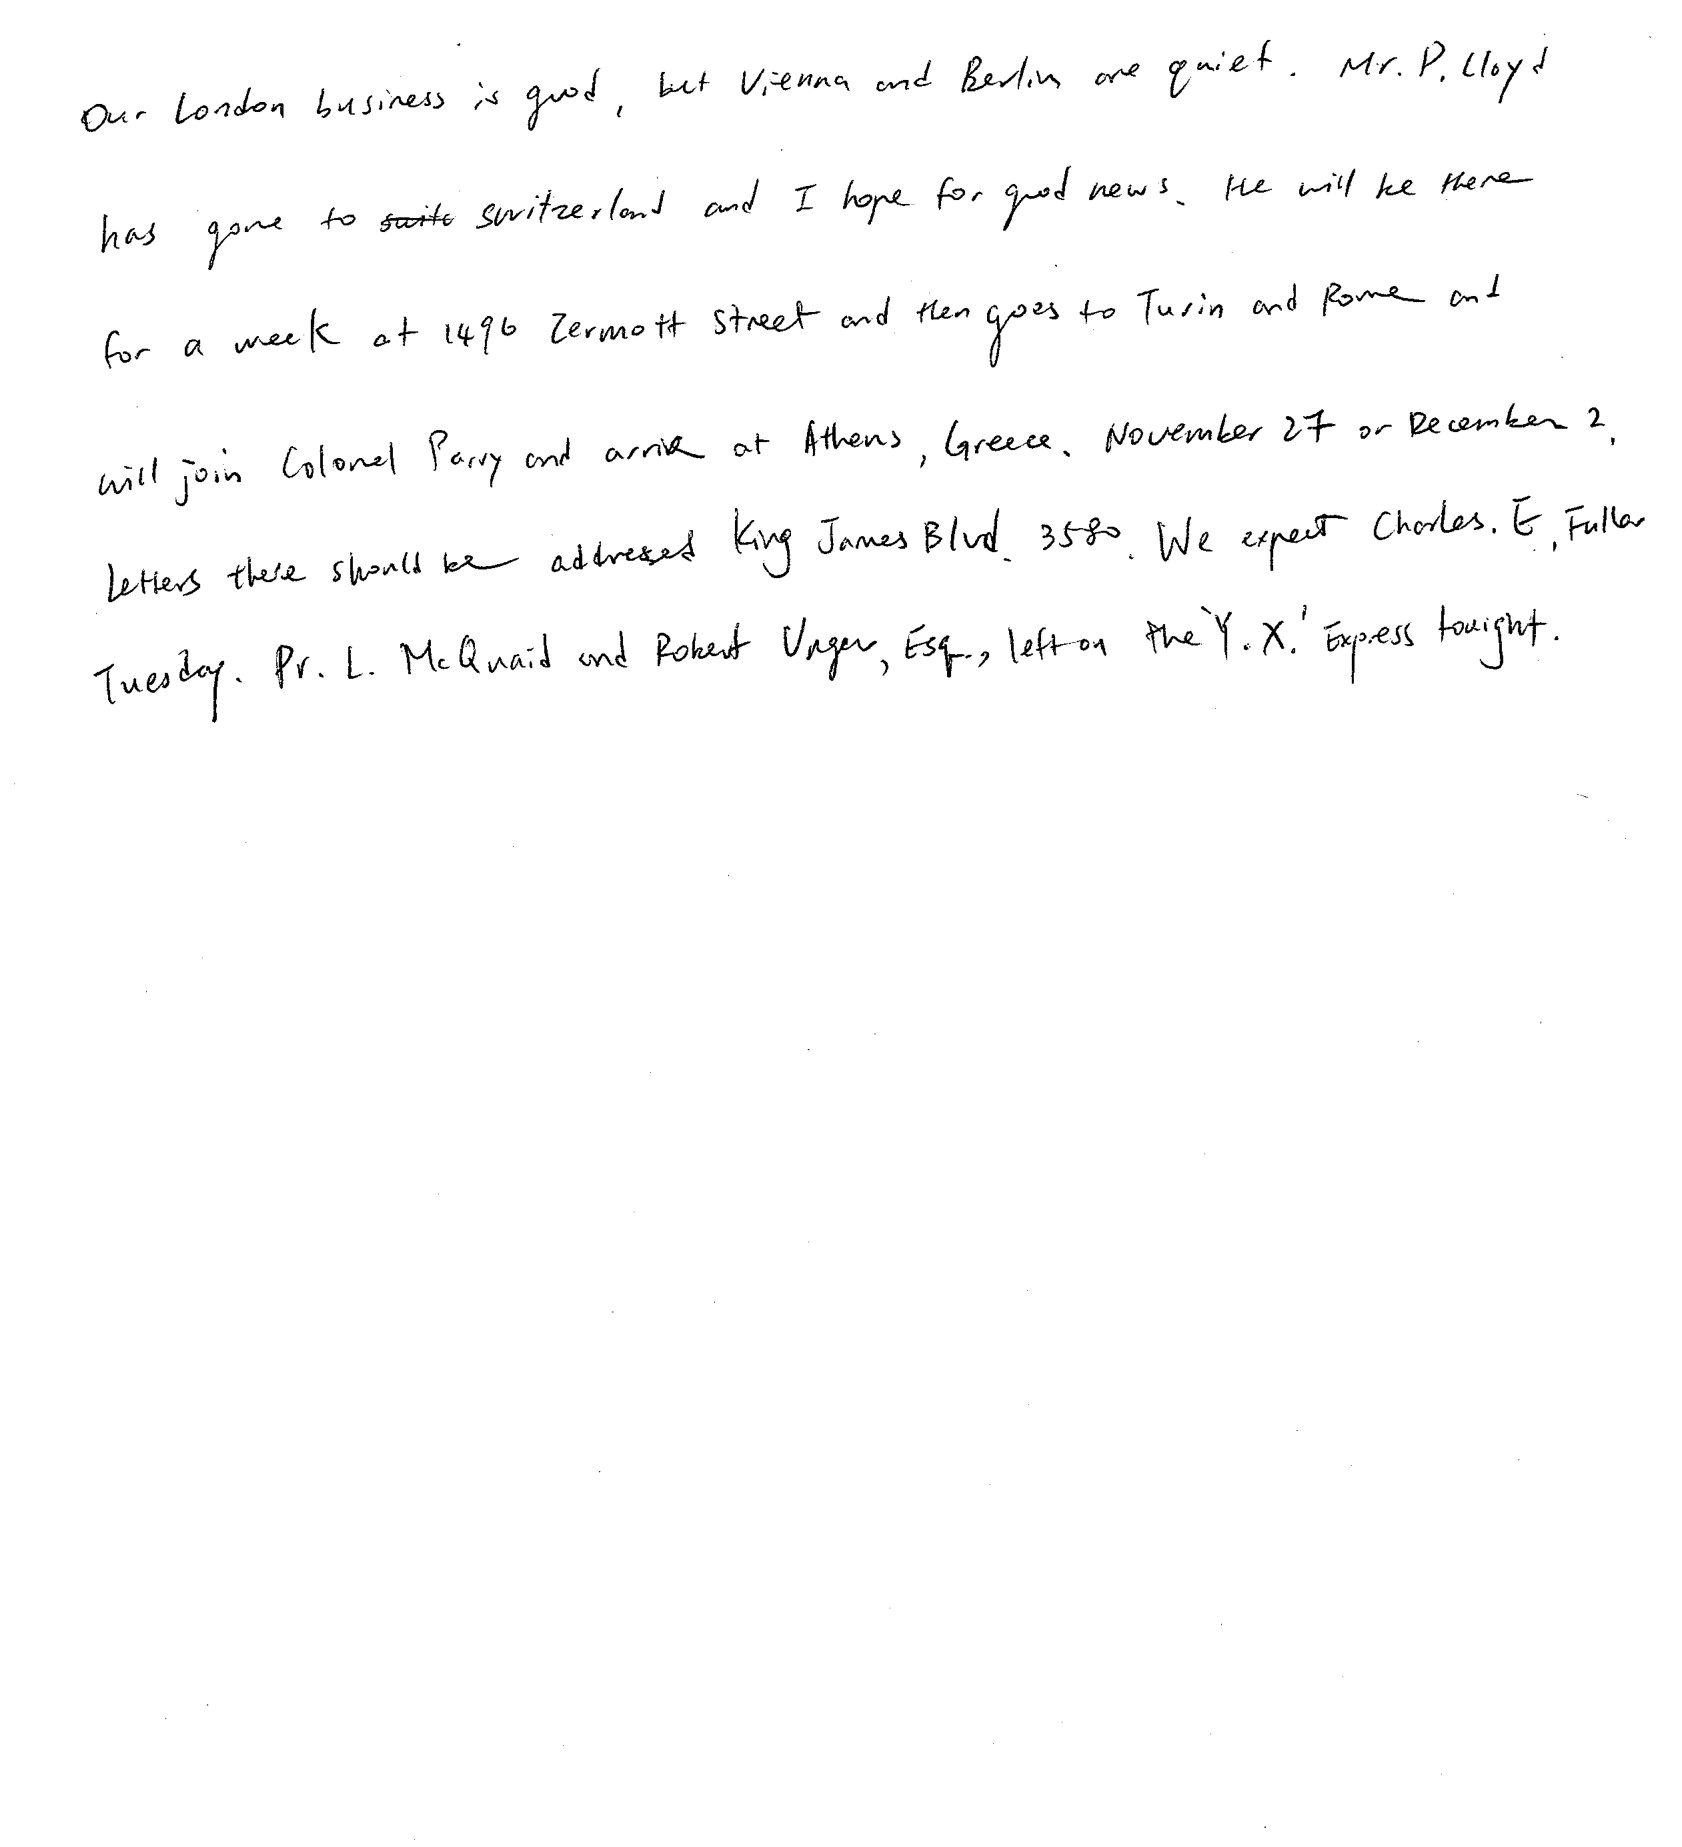 Our London business is good, but Vienna and Berlin are quiet. Mr. P. Lloyd
has gone to switzerland and I hope for good news. He will be there
for a week at 1496 Zermott Street and then goes to Turin and Rome and
will join Colonel Parry and arrive at Athens, Greece. November 27 or December 2.
Letters there should be addressed King James Blvd. 3580. We expect Charles. E. Fuller
Tuesday. Pr. L. McQuaid and Robert Unger, Esq., left on the 'Y. X.' Express tonight.